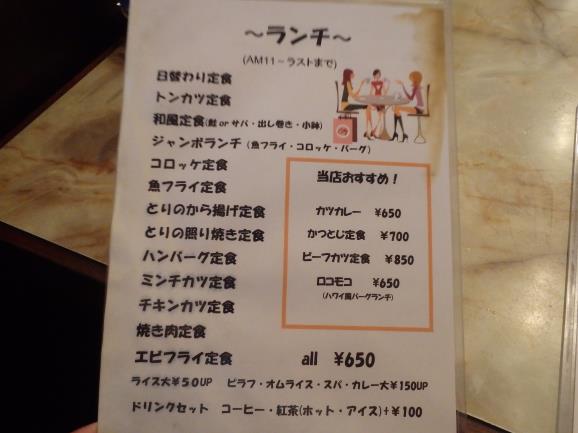 ～ランチ～
(AM11～ラストまで)
日替わり定食
トンカツ定食
和風定食(鮭 or サバ・出し巻き・小鉢)
ジャンボランチ (魚フライ・コロッケ・バーグ)
コロッケ定食
魚フライ定食
とりのから揚げ定食
とりの照り焼き定食
ハンバーグ定食
ミンチカツ定食
チキンカツ定食
焼き肉定食
エビフライ定食 all ¥650
当店おすすめ！
カツカレー ¥650
かつとじ定食 ¥700
ビーフカツ定食 ¥850
ロコモコ ¥650
(ハワイ風バーグランチ)
ライス大¥50UP ピラフ・オムライス・スパ・カレー大¥150UP
ドリンクセット コーヒー・紅茶(ホット・アイス)+¥100